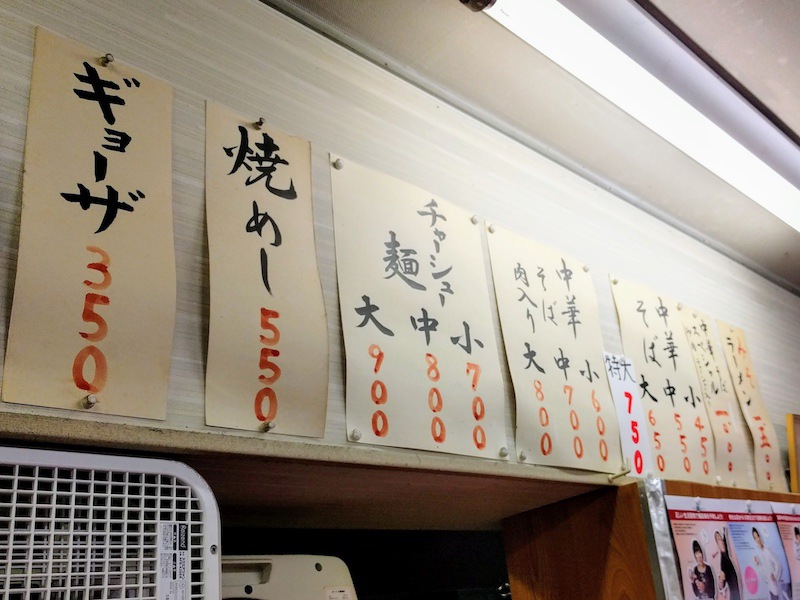 ギョーザ
350
焼めし
550
チャーシュー
麺
小 700
中 800
大 900
中華
そば
肉入り
小 600
中 700
大 800
中華
そば
小 450
中 550
大 650
特大
750
ラーメン